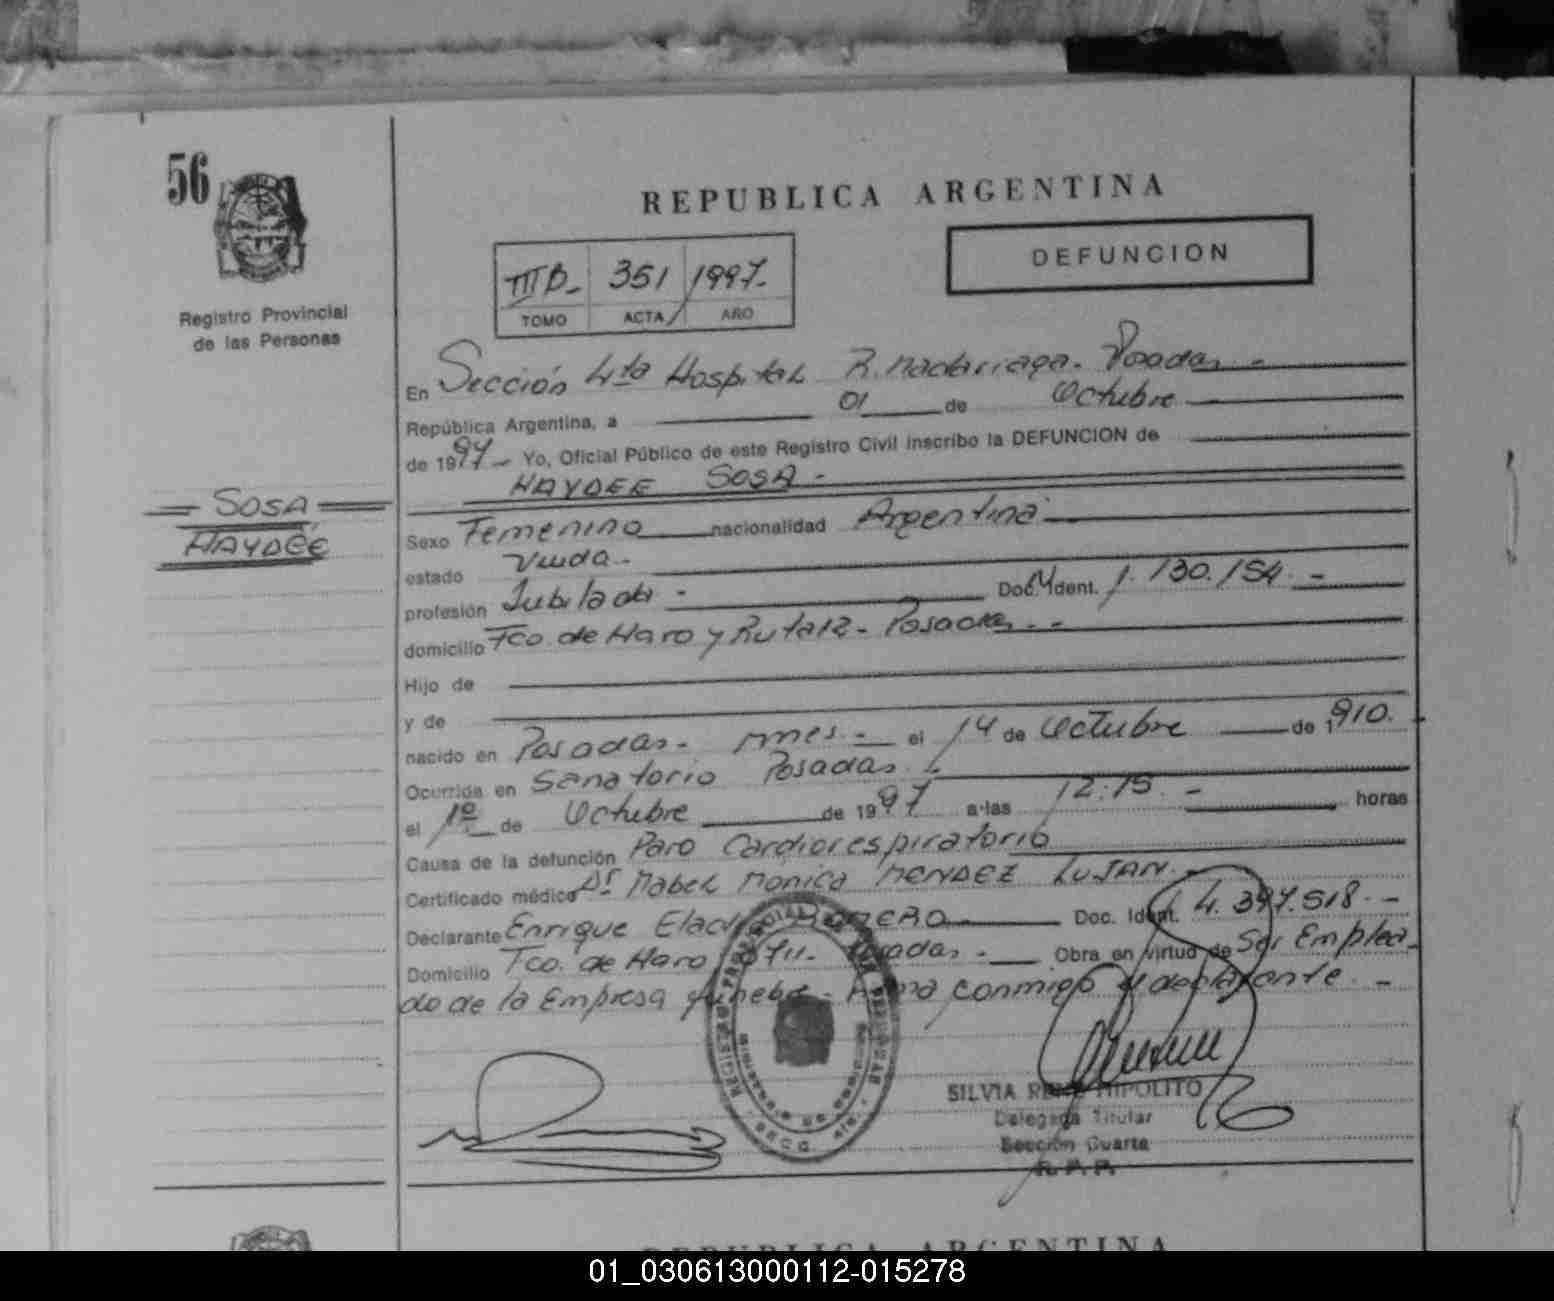 56
REPUBLICA ARGENTINA
DEFUNCION
Registro Provincial
de las Personas
III B- 351 1997-
TOMO ACTA AÑO
En Sección 4ta Hospital R. Madariaga. Posadas -
República Argentina, a 01 de Octubre
de 1997 - Yo, Oficial Público de este Registro Civil inscribo la DEFUNCION de
HAYDEE SOSA -
SOSA
HAYDÉE
Sexo Femenino nacionalidad Argentina
estado Viuda -
profesión Jubilada - Doc. Ident. 1.130.154 -
domicilio Fco. de Haro y Ruta 12 - Posadas -
Hijo de
y de
nacido en Posadas - Mnes. - el 14 de Octubre de 1910.
Ocurrida en Sanatorio Posadas
el 1º de Octubre de 1997 a las 12:15 - horas
Causa de la defunción Paro Cardiorespiratorio
Certificado médico Dr Mabel Monica MENDEZ LUJAN -
Declarante Enrique ROMERO Doc. Ident. 4.397.518 -
Domicilio Fco. de Haro Posadas - Obra en virtud de Ser Emplea-
do de la Empresa fúnebre - Firma conmigo el declarante -
REGISTRO PROVINCIAL DE LAS PERSONAS
SILVIA HIPOLITO
Delegada Titular
Sección Cuarta
R.P.P.
REPUBLICA ARGENTINA
01_030613000112-015278